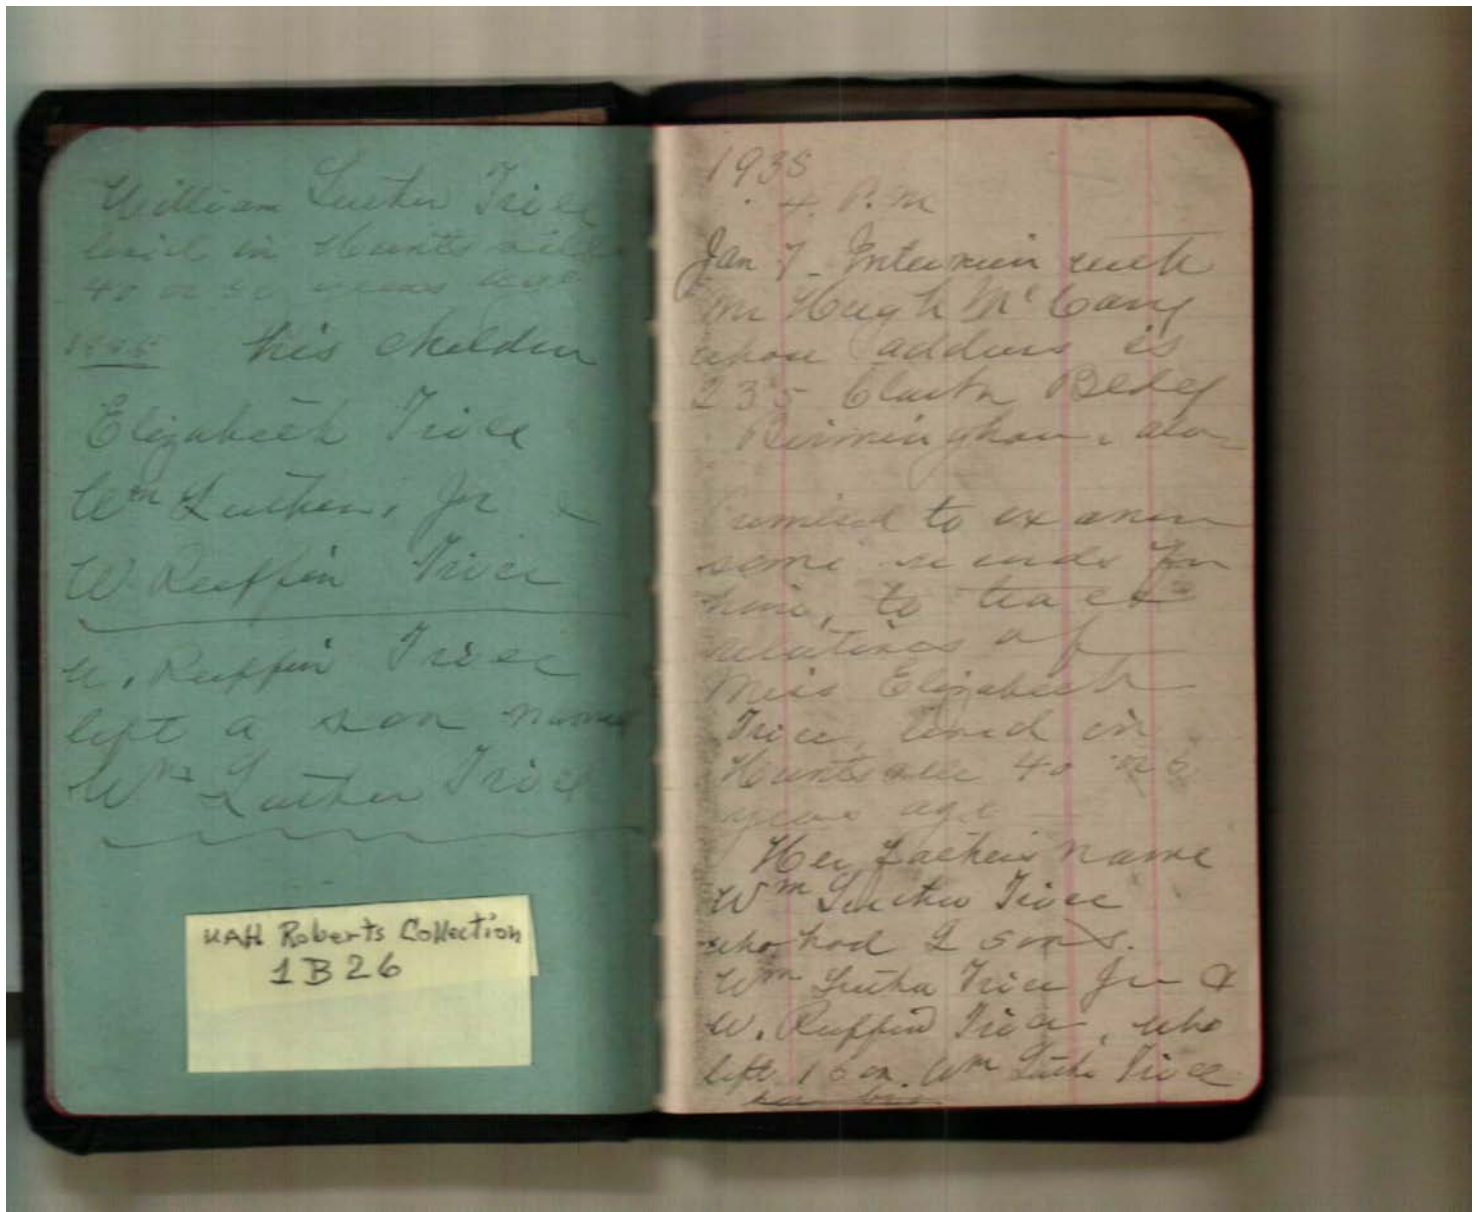 William Luther Trice
lived in Huntsville
40 or 50 years ago
his children
Elizabeth Trice
Wm Luther, Jr &
W Ruffin Trice
W. Ruffin Trice
left a son name
Wm Luther Trice
UAH Roberts Collection
1B26
1938
4. P.M
Jan 7 - Interview with
Mr Hugh
whose address is
235 Bldg
Birmingham, ala
to examin
some records for
him, to trace
relatives of
Miss Elizabeth
Trice, lived in
Huntsville 40 or 5
years ago
Her Father's name
Wm Luther Trice
who had 2 sons.
Wm Luther Trice Jr &
W. Ruffin Trice, who
left 1 son. Wm Luther Trice